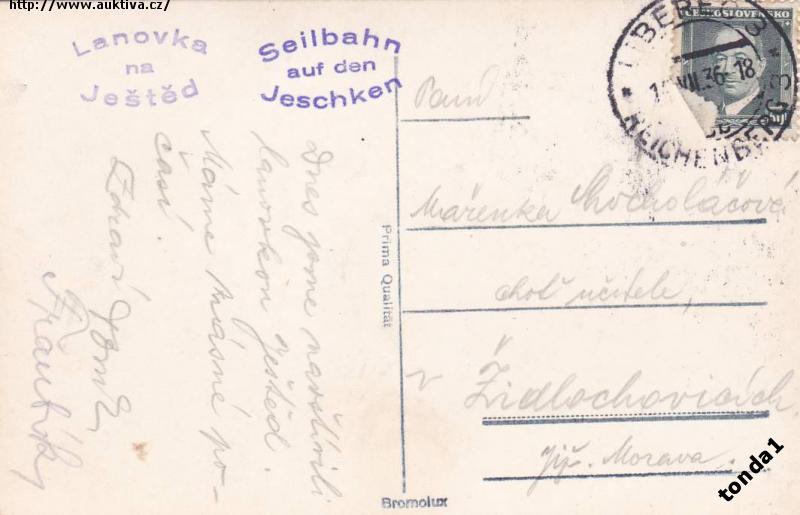 http://www.auktiva.cz/
Lanovka
na
Ještěd
Seilbahn
auf den
Jeschken
LIBEREC 3
VII.36-18
REICHENBERG 3
ČESKOSLOVENSKO
Dnes jsme navštívili
lanovkou Ještěd.
Máme krásné po-
časí.
Zdraví
Prima Qualität
Bromolux
Paní
Mařenka
choť učitele,
v Židlochovicích
Již. Morava.
tonda1